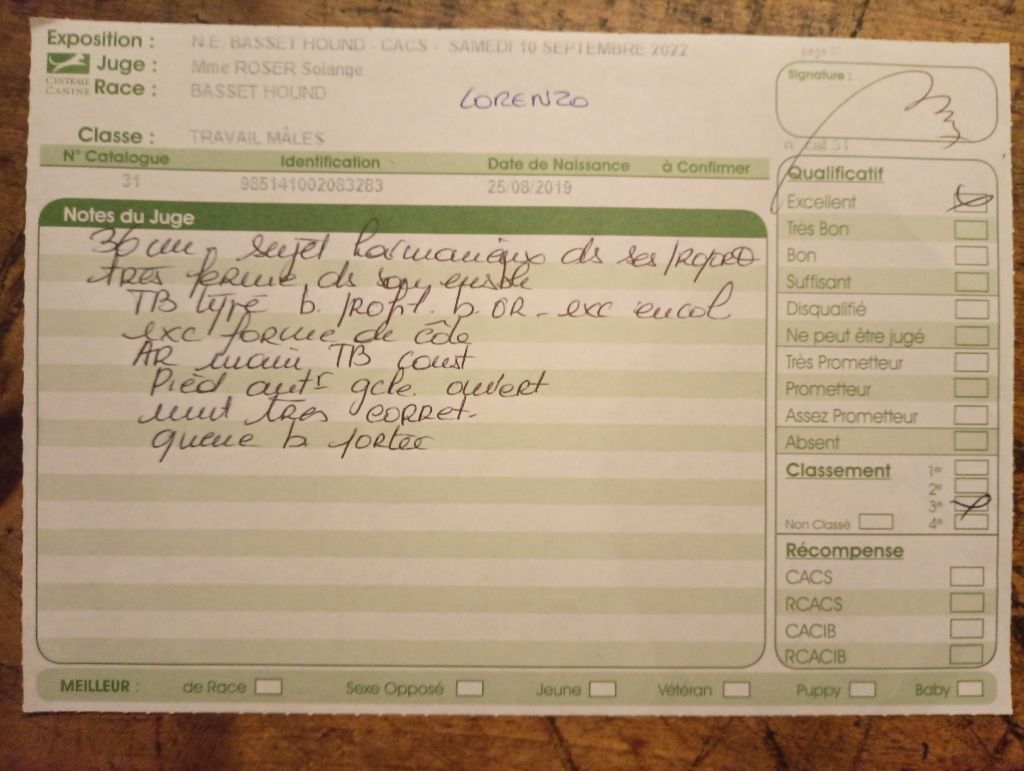 Exposition : N.E. BASSET HOUND - CACS - SAMEDI 10 SEPTEMBRE 2022
page 31
Juge : Mme ROSER Solange
CENTRALE CANINE
Race : BASSET HOUND
LORENZO
Signature :
Classe : TRAVAIL MÂLES
n° cat 31
N° Catalogue Identification Date de Naissance à Confirmer
31 985141002083283 25/08/2019
Notes du Juge
36 cm. sujet harmonieux ds ses propo
très ferme ds son ensble
TB type b. profil. b. OR - exc encol
exc forme de côte
AR main TB const
Pied antr gche ouvert
mvt très corret.
queue b. portée
Qualificatif
Excellent
Très Bon
Bon
Suffisant
Disqualifié
Ne peut être jugé
Très Prometteur
Prometteur
Assez Prometteur
Absent
Classement 1er
2e
3e
Non Classé 4e
Récompense
CACS
RCACS
CACIB
RCACIB
MEILLEUR : de Race Sexe Opposé Jeune Vétéran Puppy Baby